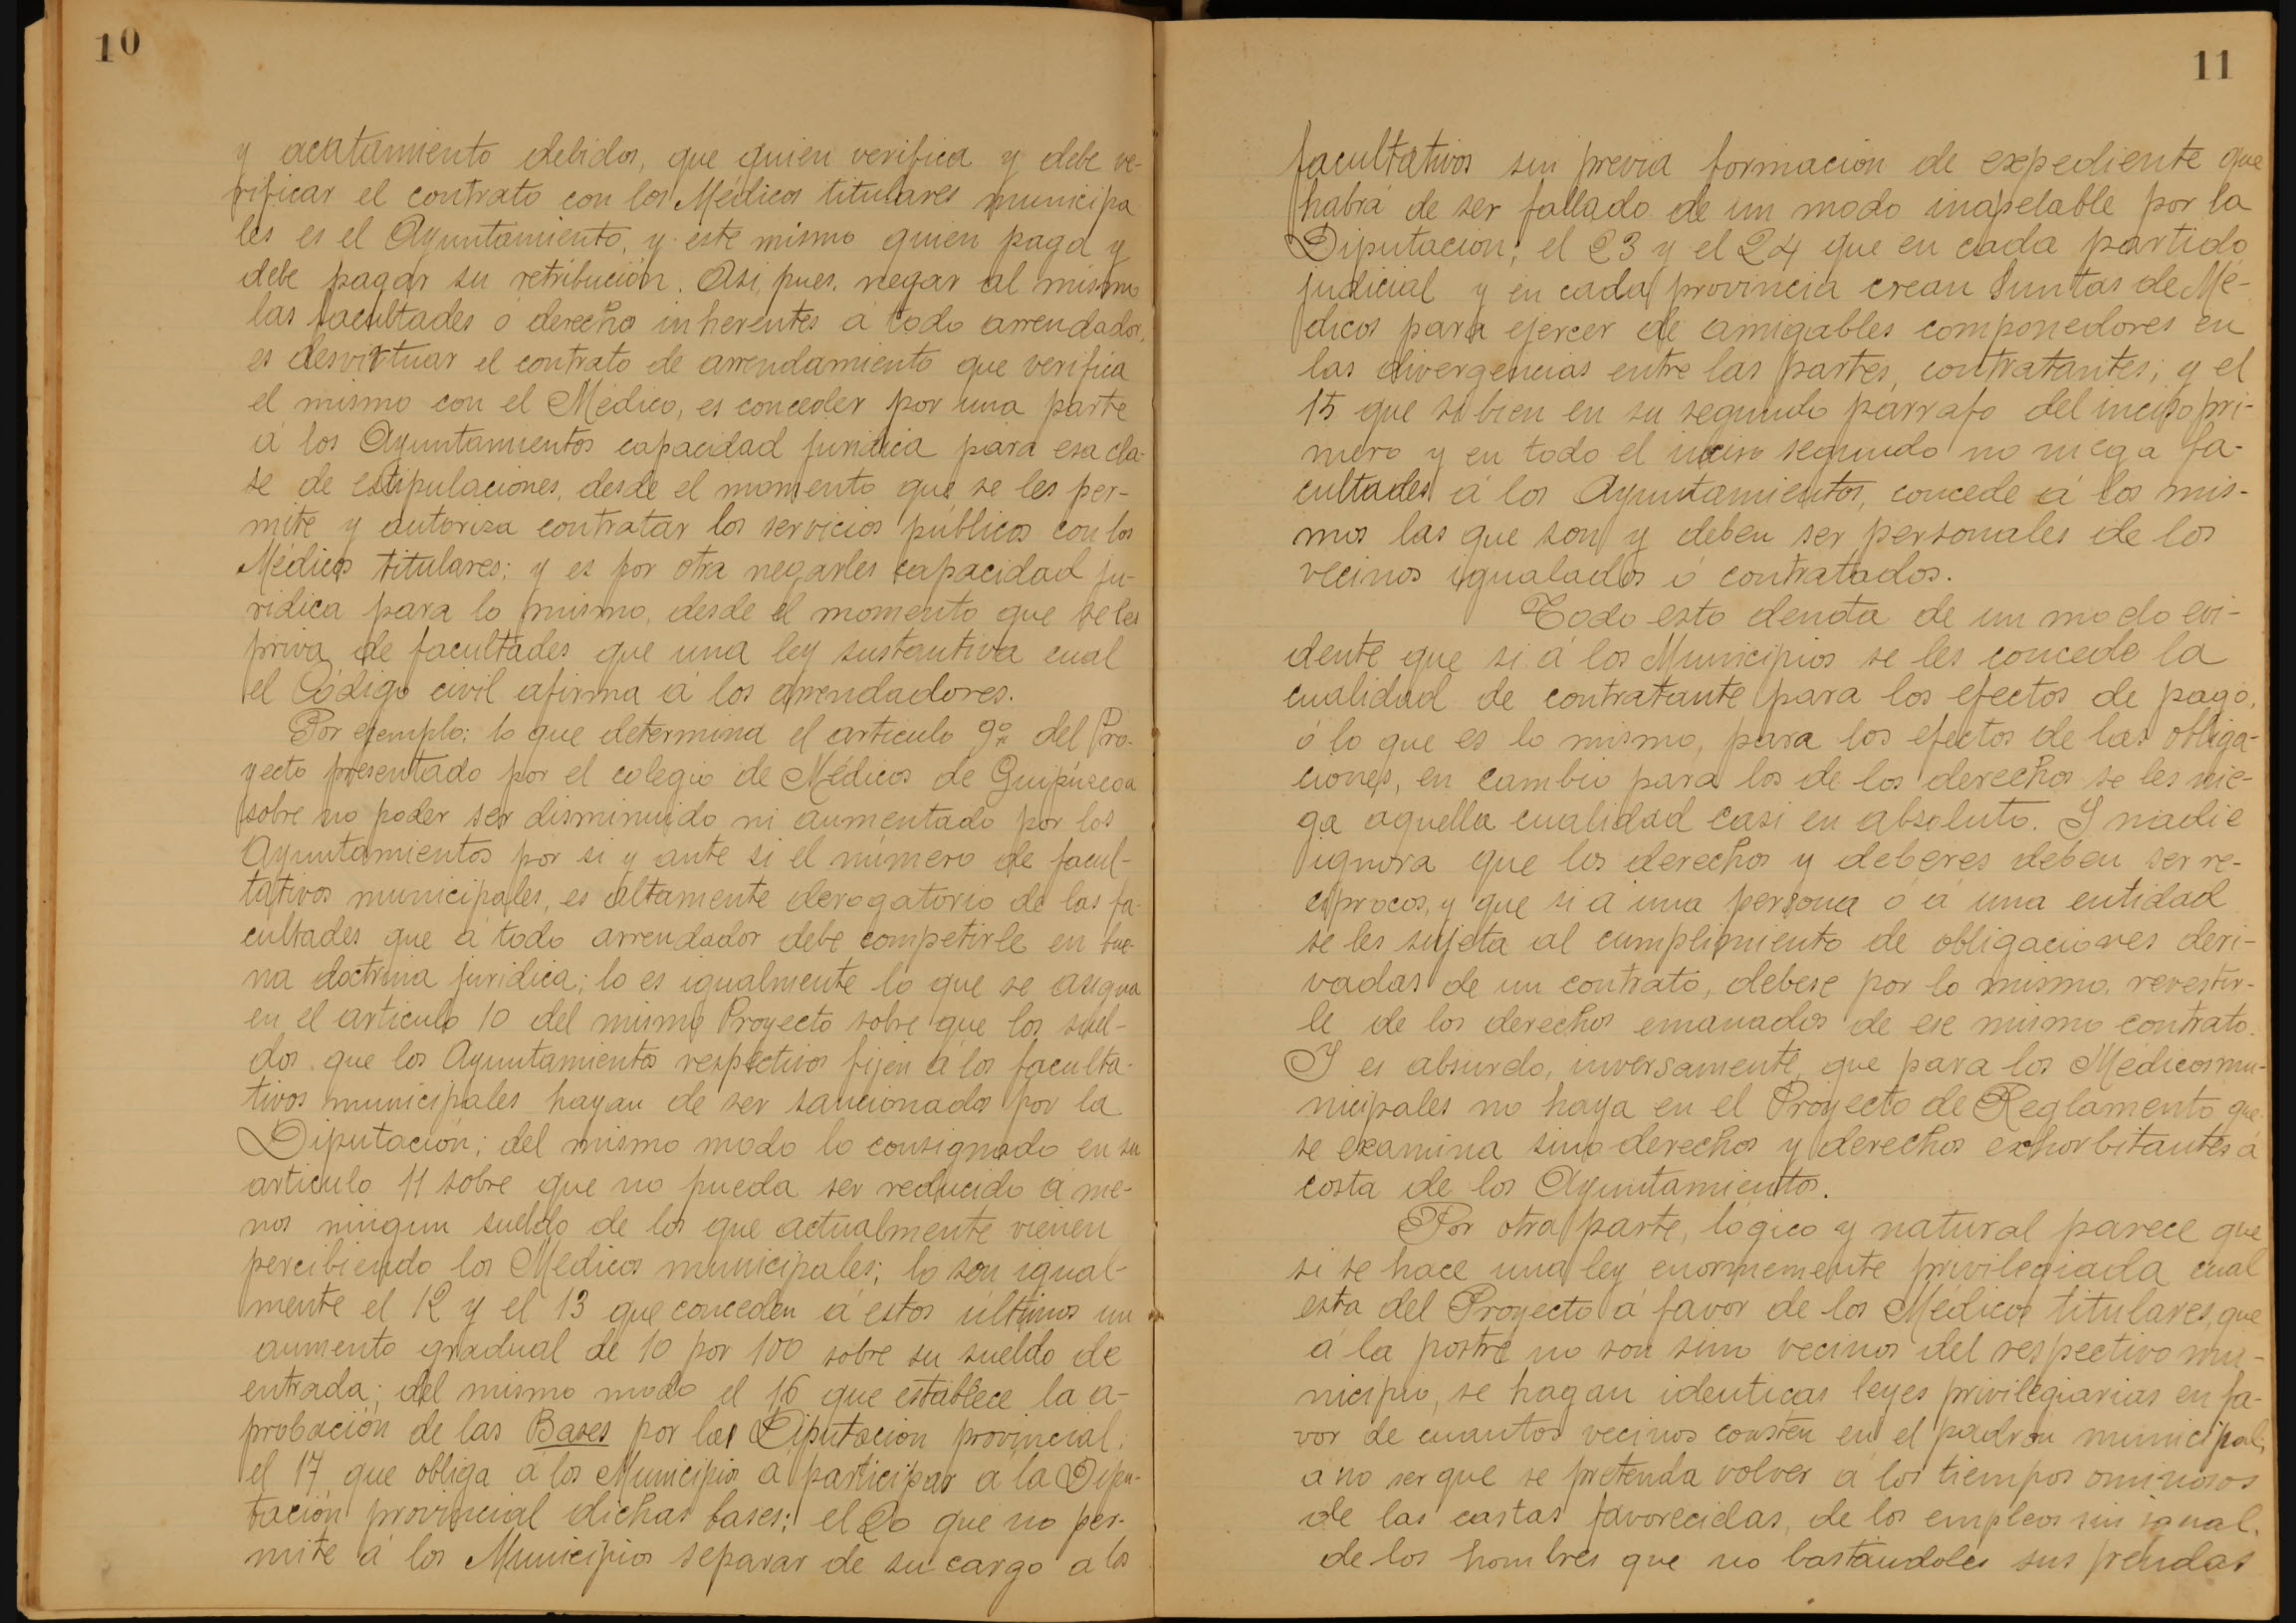 10
y acatamiento debidos, que quien verifica y debe ve-
rificar el contrato con los Médicos titulares municipa
les es el Ayuntamiento, y este mismo quien paga y
debe pagar su retribución. Asi, pues, negar al mismo
las facultades ó derechos inherentes á todo arrendador,
es desvirtuar el contrato de arrendamiento que verifica
el mismo con el Médico, es conceder por una parte
á los Ayuntamientos capacidad juridica para esa cla-
se de estipulaciones, desde el momento que se les per-
mite y autoriza contratar los servicios públicos con los
Médicos titulares; y es por otra negarles capacidad ju-
ridica para lo mismo, desde el momento que se les
priva de facultades que una ley sustantiva cual
el Código civil afirma á los arrendadores.
Por ejemplo: lo que determina el articulo 9º del Pro-
yecto presentado por el colegio de Médicos de Guipúzcoa
sobre no poder ser disminuido ni aumentado por los
Ayuntamientos por si y ante si el número de facul-
tativos municipales, es altamente derogatorio de las fa-
cultades que á todo arrendador debe competirle en bue-
na doctrina juridica; lo es igualmente lo que se asigna
en el articulo 10 del mismo Proyecto sobre que los suel-
dos que los Ayuntamientos respectivos fijen á los faculta-
tivos municipales hayan de ser sancionados por la
Diputación; del mismo modo lo consignado en su
articulo 11 sobre que no pueda ser reducido á me-
nos ningun sueldo de los que actualmente vienen
percibiendo los Médicos municipales; lo son igual-
mente el 12 y el 13 que conceden á estos últimos un
aumento gradual de 10 por 100 sobre su sueldo de
entrada; del mismo modo el 16 que establece la a-
probación de las Bases por la Diputación provincial;
el 17 que obliga á los Municipios á participar á la Dipu-
tación provincial dichas bases; el 20 que no per-
mite á los Municipios separar de su cargo a los
11
facultativos sin previa formación de expediente que
habrá de ser fallado de un modo inapelable por la
Diputación; el 23 y el 24 que en cada partido
judicial y en cada provincia crean Juntas de Mé-
dicos para ejercer de amigables componedores en
las divergencias entre las partes contratantes; y el
15 que si bien en su segundo párrafo del inciso pri-
mero y en todo el inciso segundo no niega fa-
cultades á los Ayuntamientos, concede á los mis-
mos las que son y deben ser personales de los
vecinos igualados ó contratados.
Todo esto denota de un modo evi-
dente que si á los Municipios se les concede la
cualidad de contratante para los efectos de pago,
ó lo que es lo mismo, para los efectos de las obliga-
ciones, en cambio para los de los derechos se les nie-
ga aquella cualidad casi en absoluto. Y nadie
ignora que los derechos y deberes deben ser re-
ciprocos, y que si á una persona ó á una entidad
se les sujeta al cumplimiento de obligaciones deri-
vadas de un contrato, debese por lo mismo revestir-
le de los derechos emanados de ese mismo contrato.
Y es absurdo, inversamente, que para los Médicos mu-
nicipales no haya en el Proyecto de Reglamento que
se examina sino derechos y derechos exhorbitantes á
costa de los Ayuntamientos.
Por otra parte, lógico y natural parece que
si se hace una ley enormemente privilegiada cual
esta del Proyecto á favor de los Médicos titulares, que
á la postre no son sino vecinos del respectivo mu-
nicipio, se hagan identicas leyes privilegiarias en fa-
vor de cuantos vecinos consten en el padrón municipal;
á no ser que se pretenda volver á los tiempos ominosos
de las castas favorecidas, de los empleos sin igual,
de los hombres que no bastandoles sus prendas